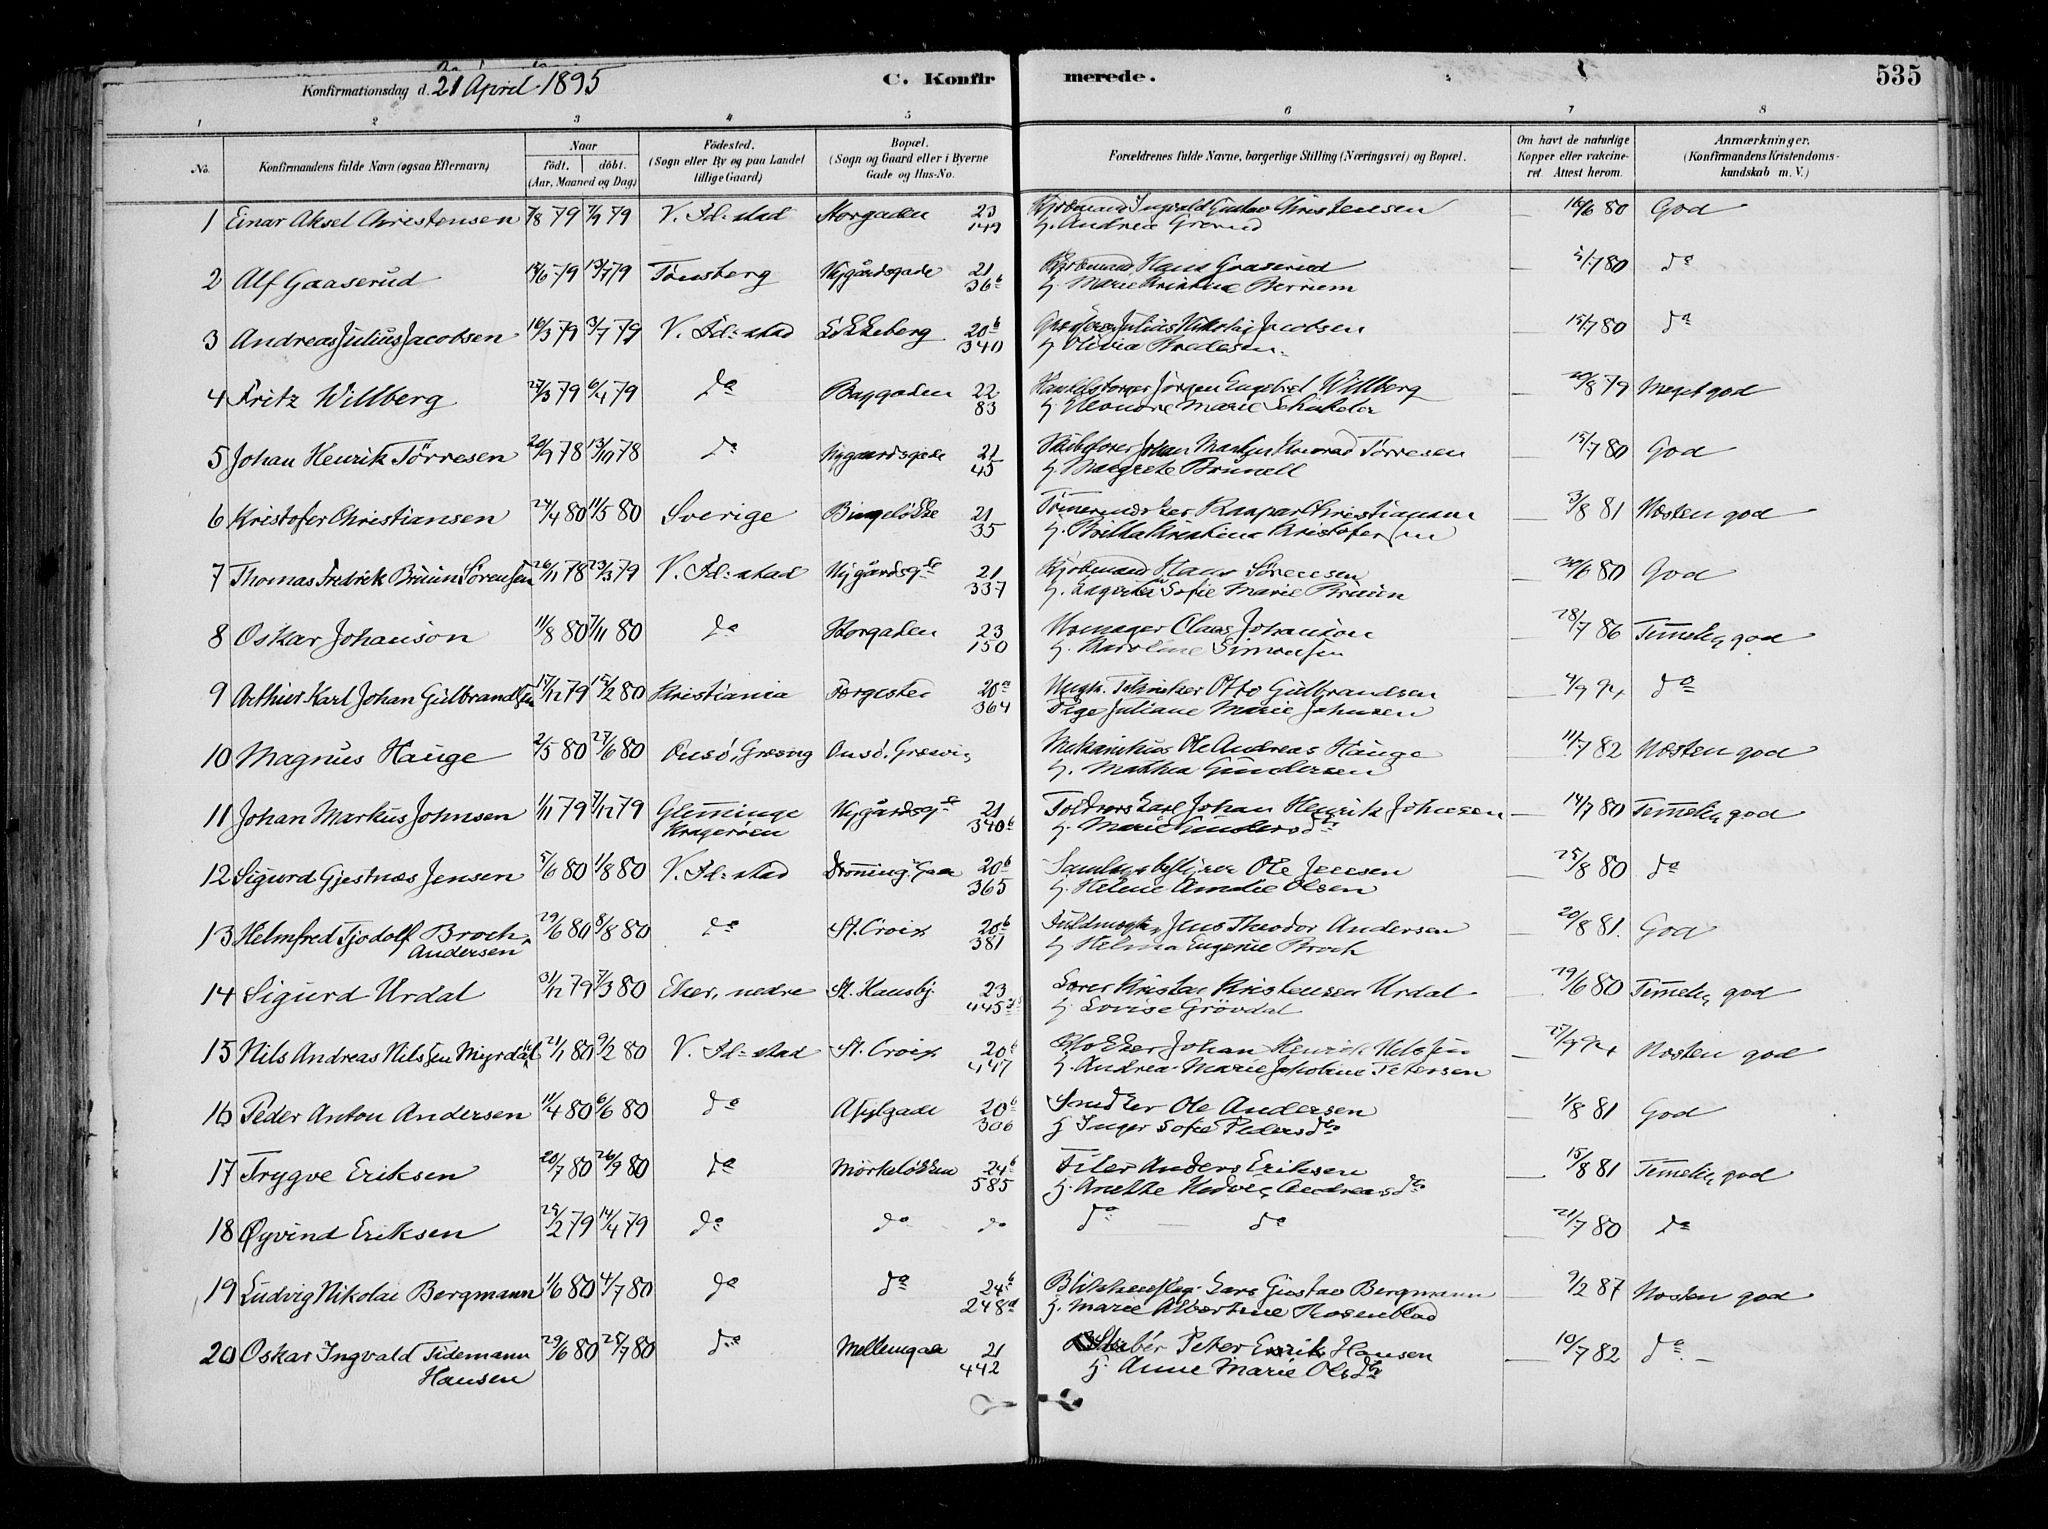 Konfirmationsdag d. 21 April 1895 C. Konfirmerede. 535
1 2 3 4 5 6 7 8
No. Konfirmandens fulde Navn (ogsaa Efternavn) Naar födt. döbt. (Aar, Maaned og Dag) Födested. (Sogn eller By og paa Landet tillige Gaard) Bopæl. (Sogn og Gaard eller i Byerne Gade og Hus-No. Forældrenes fulde Navne, borgerlige Stilling (Næringsvei) og Bopæl. Om havt de naturlige Kopper eller vakcineret. Attest herom. Anmærkninger. (Konfirmandens Kristendomskundskab m. V.)
1 Einar Aksel Christensen 7/8 79 7/9 79 V. Fd:stad Storgaden 23 149 Kjøbmand Ingvald Gustav Christensen — 16/6 80 God
H. Andrea
2 Alf Gaaserud 79 13/7 79 Tønsberg Nygårdsgade 21 36b Kjøbmand Hans Gaaserud — 5/7 80 do
H. Marie Kristine
3 Andreas Julius Jacobsen 16/3 79 3/7 79 V. Fd:stad Ekeberg 20b 340 Julius Nikolai Jacobsen — 15/7 80 do
H. Olivia
4 Fritz Willberg 27/3 79 6/4 79 do Baggaden 22 83 Jørgen Engebret Willberg — 20/8 79 Meget god
H. Eleonore Marie
5 Johan Henrik Törresen 20/9 78 13/10 78 do Nygaardsgade 21 45 Johan Martin Konrad Törresen — 15/7 80 God
H. Margrete Brunell
6 Kristofer Christiansen 27/4 80 11/5 80 Sverige Bingeløkke 21 35 Kaspar Kristiansen — 3/8 81 Næsten god
H. Kristine Kristofersen
7 Thomas Fredrik Bruun Sørensen 26/11 78 23/3 79 V. Fd:stad Nygårdsgde 21 337 Kjøbmand Hans Sørensen — 30/6 80 God
H. Sofie Marie Bruun
8 Oskar Johanson 11/8 80 7/11 80 do Storgaden 23 150 Urmager Claes Johanson — 28/7 86 Temmelig god
H. Karoline Simonsen
9 Arthur Karl Johan Gulbrandsen 17/12 79 15/2 80 Kristiania Færgested 20a 364 Ungk. Otto Gulbrandsen — 4/9 94 do
Pige Juliane Marie Johnsen
10 Magnus Hauge 2/5 80 27/6 80 Onsö, Græsvig Onsö, Græsvig Mekanikus Ole Andreas Hauge — 11/7 82 Næsten god
H. Mathea Gundersen
11 Johan Markus Johnsen 1/11 79 7/12 79 Glemminge Kragerøen Nygårdsgde 21 340b Johan Henrik Johnsen — 14/7 80 Temmelig god
H. Marie Gundersdtr
12 Sigurd Gjestnæs Jensen 5/6 80 1/8 80 V. Fd:stad Dronning. Gade 20b 365 Ole Jensen — 25/8 80 do
H. Helene Amalie Olsen
13 Helmfred Tjodolf Broch Andersen 29/6 80 8/8 80 do St. Croix 20b 381 Fuldmægtig Jens Theodor Andersen — 20/8 81. God
H. Helma Eugenie Broch
14 Sigurd Urdal 31/12 79 7/3 80 Eker, nedre St. Hansbj. 23 445 Lærer Kristian Kristensen Urdal — 29/6 80 Temmelig god
H. Lovise Grövdal
15 Nils Andreas Nilssen Myrdal 21/1 80 9/2 80 V. Fd:stad St. Croix 20b 447 Johan Henrik Nilssen — 27/7 94 Næsten god
H. Andrea Marie Petersen
16 Peder Anton Andersen 11/4 80 6/6 80 do Asylgade 20b 306 Snedker Ole Andersen — 1/8 81 God
H. Inger Sofie Pedersdtr
17 Trygve Eriksen 20/7 80 26/9 80 do Mörkeløkken 24b 585 Filer Anders Eriksen — 15/8 81 Temmelig god
H. Anette Hedvig Andreasdtr
18 Øyvind Eriksen 25/2 79 14/4 79 do do do do — do — 21/7 80 do
19 Ludvig Nikolai Bergmann 1/6 80 4/7 80 do do 24b 248a Blikkenslag. Lars Gustav Bergmann — 9/2 87 Næsten god
H. Marie Albertine Rosenblad
20 Oskar Ingvald Tidemann Hansen 29/6 80 25/7 80 do Mellemgade 21 442 Peter Enrik Hansen — 10/7 82 do. —
H. Anne Marie Olsdtr